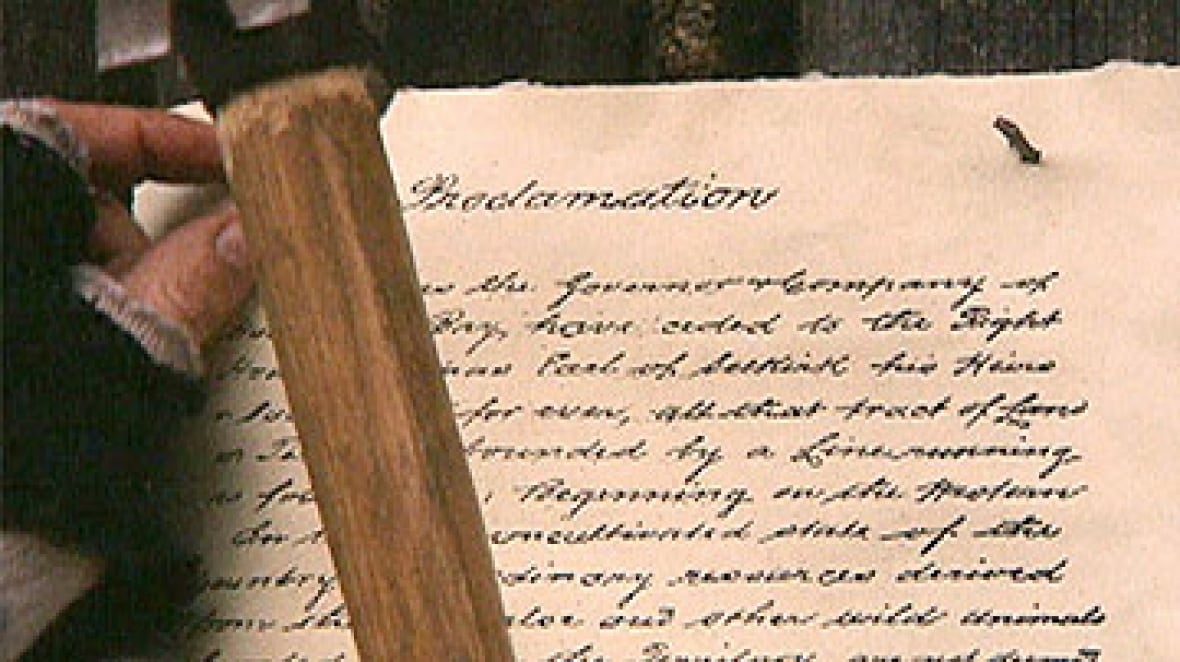 Proclamation
the Governor & Company of
Bay, have ceded to the Right
Earl of Selkirk his Heirs
for ever, all that tract of Land
bounded by a Line running
Beginning on the Western
uncultivated state of the
ountry dinary resources derived
and other wild animals
the Territory